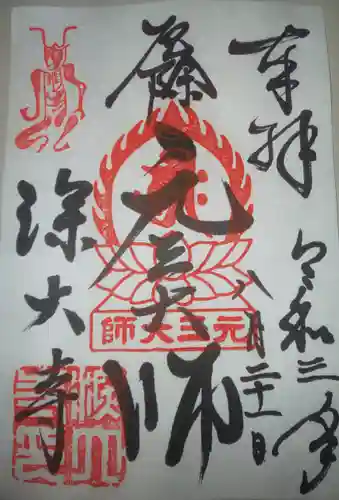 奉拝
令和三年
八月二十一日
元三大師
元三大師
深大寺